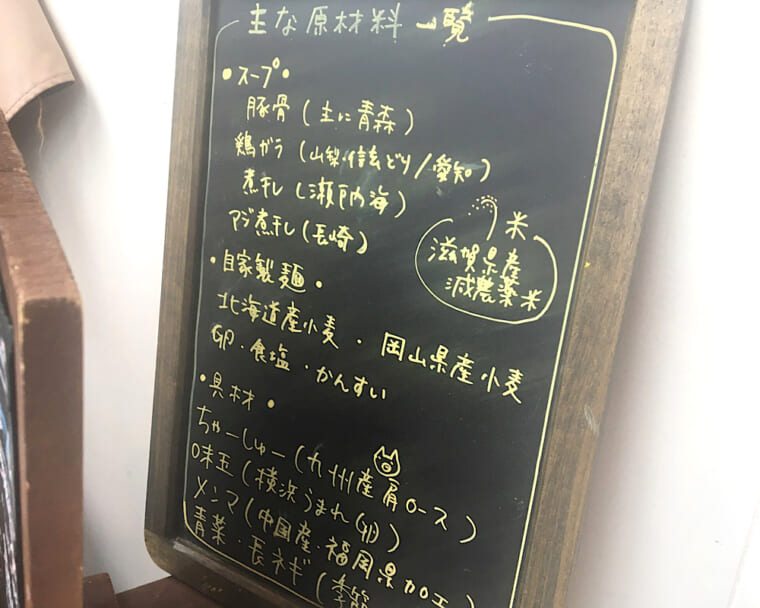 主な原材料一覧
•スープ•
豚骨(主に青森)
鶏ガラ(山梨・信玄どり/愛知)
煮干し(瀬戸内海)
アジ煮干し(長崎)
米
滋賀県産
減農薬米
•自家製麺•
北海道産小麦・岡山県産小麦
卵・食塩・かんすい
•具材•
ちゃーしゅー(九州産肩ロース)
味玉(横浜うまれ卵)
メンマ(中国産・福岡県加工
青菜・長ネギ(季節